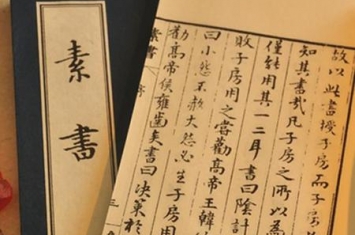 素書
故以此書授子房而子房
知其書哉凡子房之所以為
僅能用其一二耳書曰陰計
敗子房用之嘗勸高帝王韓
曰小怨不赦大怨必生子房用
勸高帝侯雍齒矣書曰決策於
素書 序 三